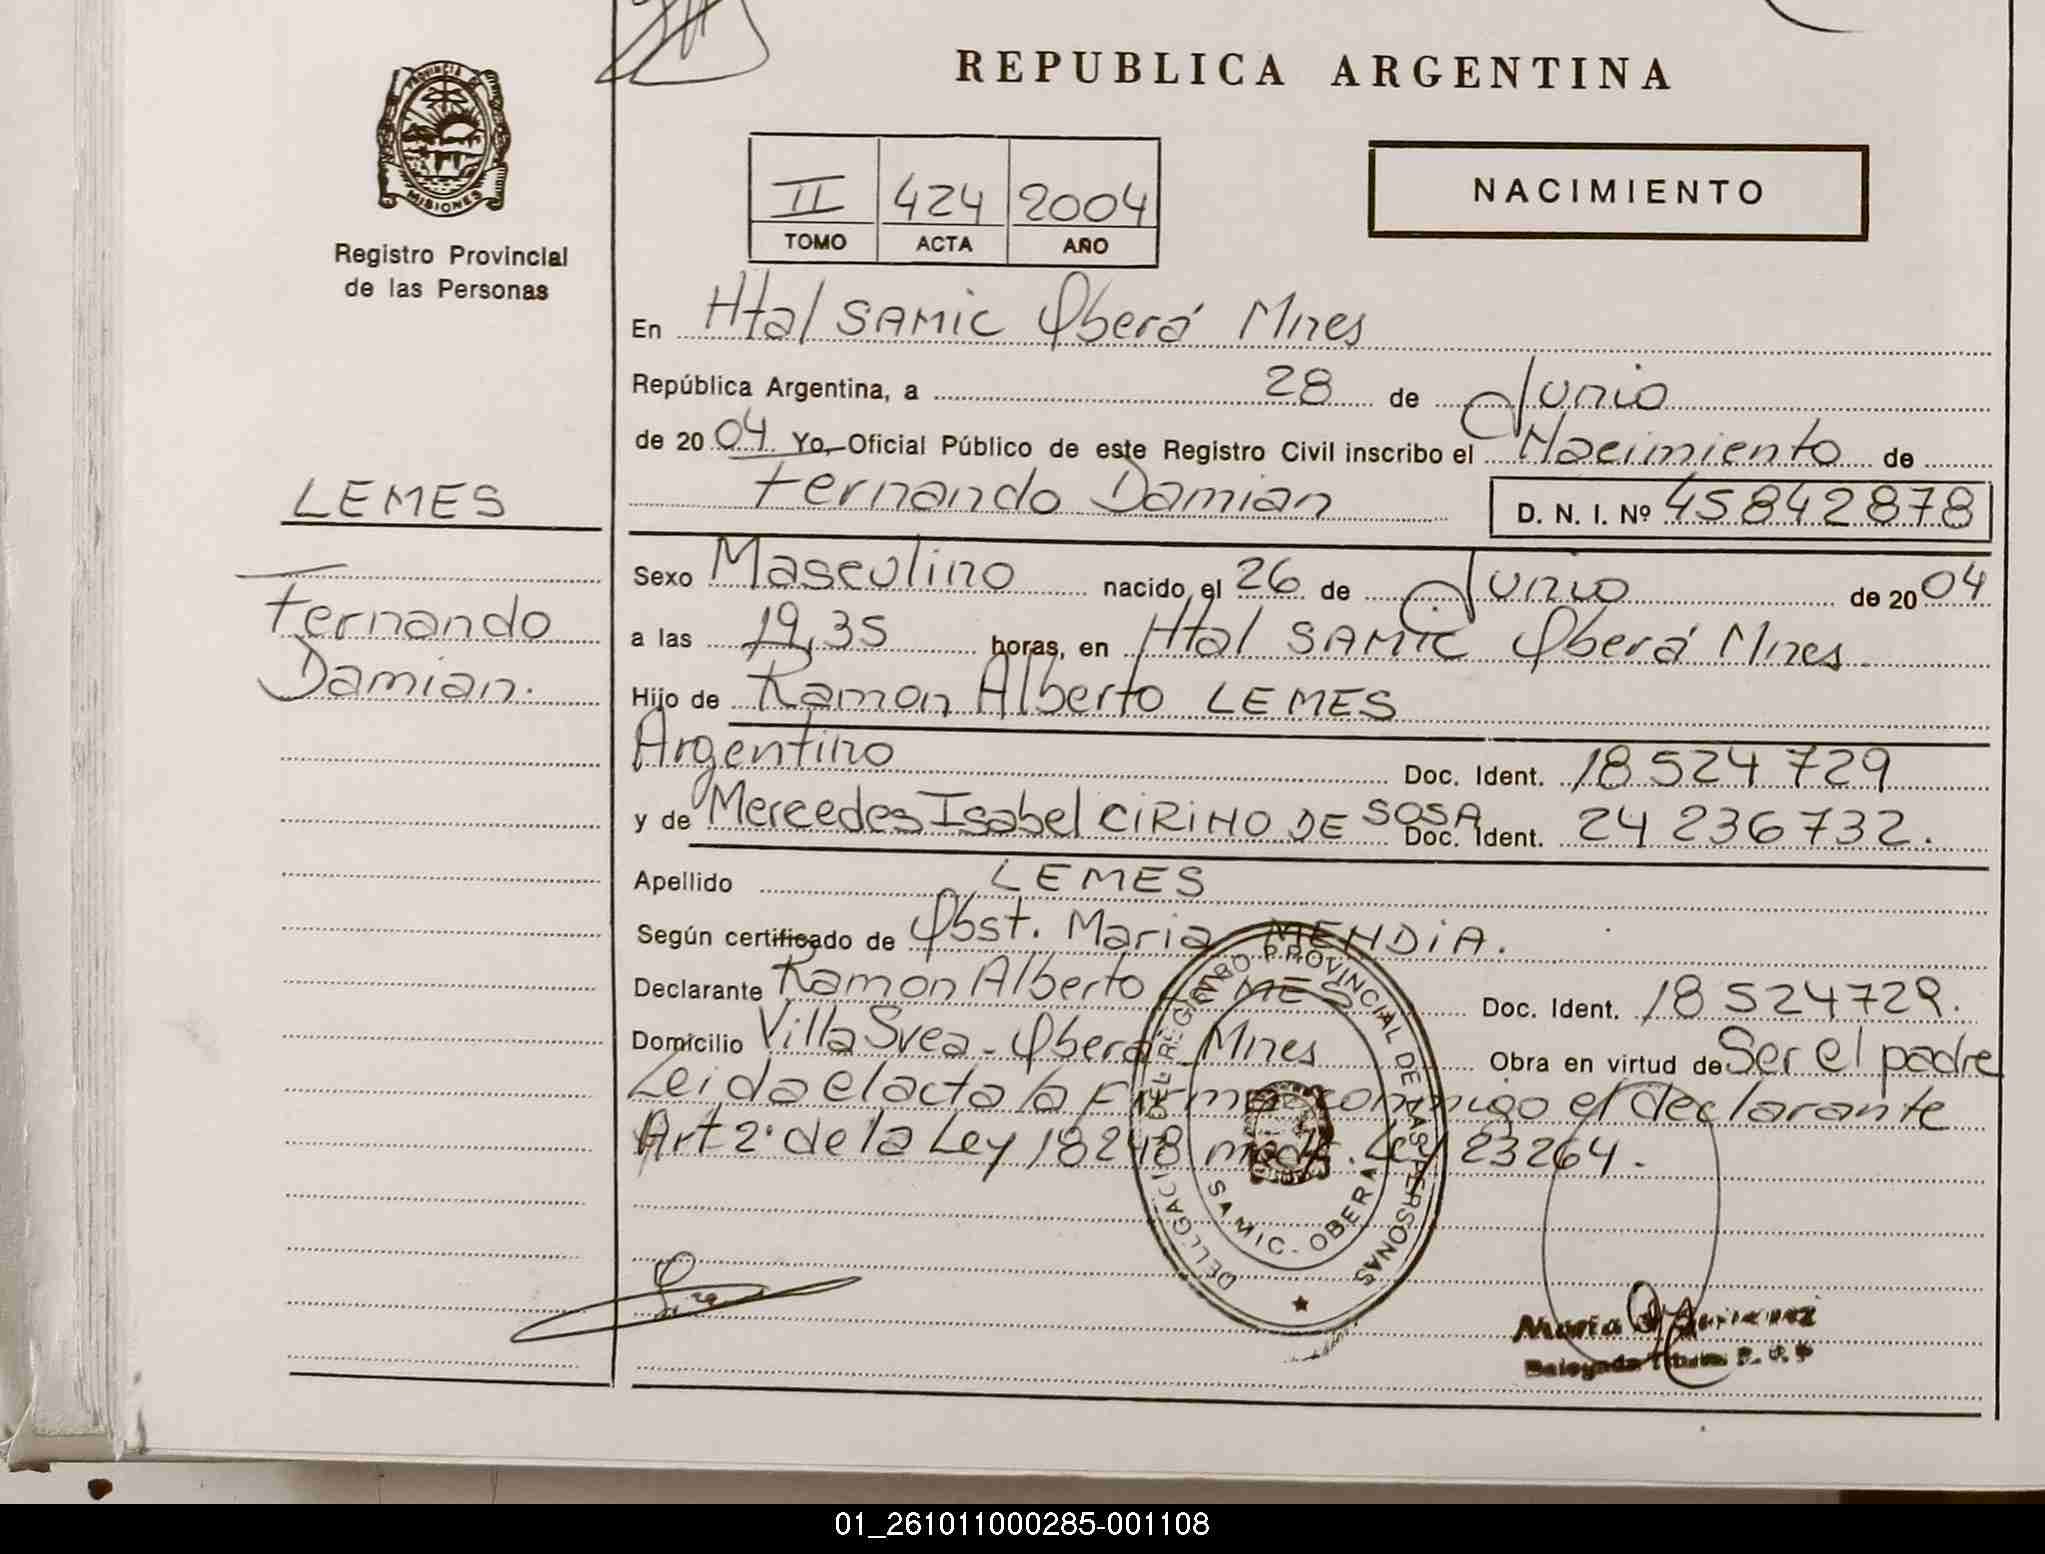 REPUBLICA ARGENTINA
PROVINCIA DE
MISIONES
Registro Provincial
de las Personas
II 424 2004
TOMO ACTA AÑO
NACIMIENTO
En Htal SAMIC Oberá Mnes
República Argentina, a 28 de Junio
de 2004 Yo, Oficial Público de este Registro Civil inscribo el Nacimiento de
Fernando Damian D. N. I. Nº 45842878
LEMES
Fernando
Damian.
Sexo Masculino nacido el 26 de Junio de 2004
a las 19,35 horas, en Htal SAMIC Oberá Mnes
Hijo de Ramon Alberto LEMES
Argentino Doc. Ident. 18524729
y de Mercedes Isabel CIRINO DE SOSA Doc. Ident. 24236732.
Apellido LEMES
Según certificado de Obst. Maria MENDIA.
Declarante Ramon Alberto LEMES Doc. Ident. 18524729.
Domicilio Villa Svea - Oberá Mnes Obra en virtud de Ser el padre
Leida el acta la Firma conmigo el declarante
Art 2º de la Ley 18248 modif. Ley 23264.
DELEGACION DEL REGISTRO PROVINCIAL DE LAS PERSONAS
SAMIC - OBERA
Maria
Delegada Titular R. P. P
01_261011000285-001108